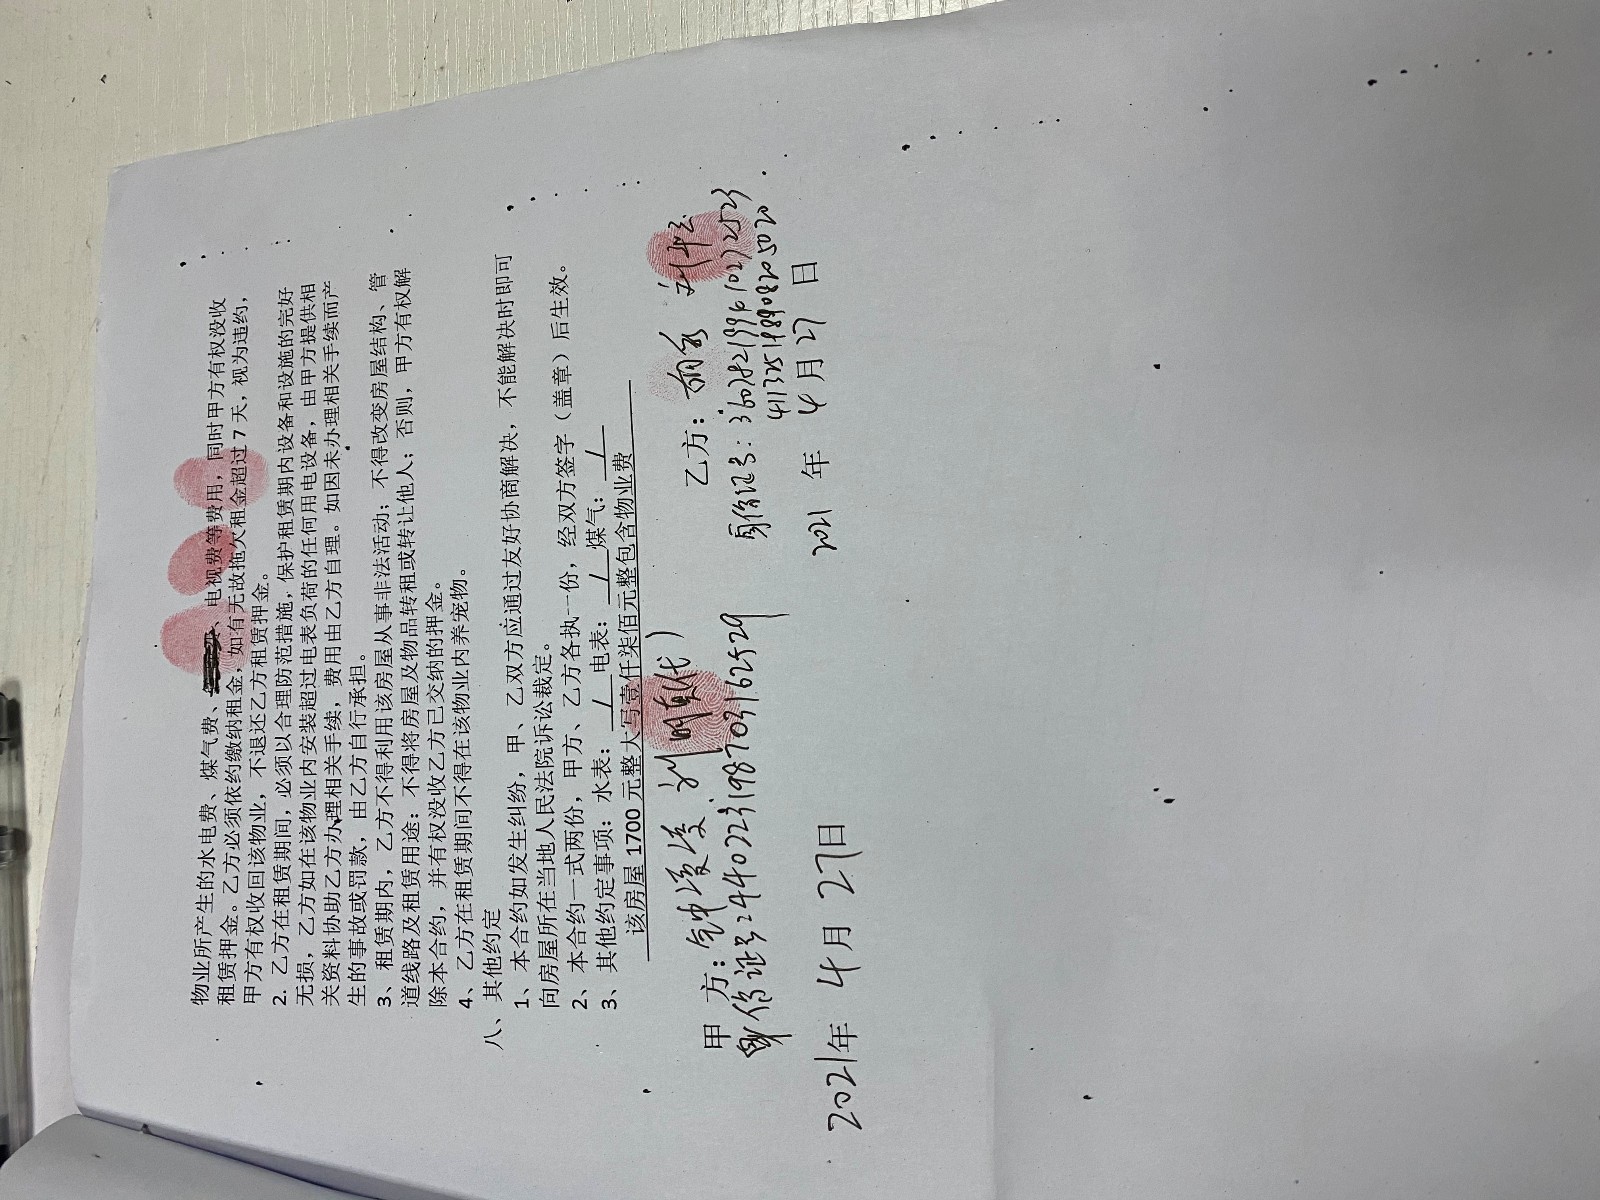 物业所产生的水电费、煤气费、、电视费等费用，同时甲方有权没收
租赁押金。乙方必须依约缴纳租金，如有无故拖欠租金超过 7 天，视为违约，
甲方有权收回该物业，不退还乙方租赁押金。
2. 乙方在租赁期间，必须以合理防范措施，保护租赁期内设备和设施的完好
无损，乙方如在该物业内安装超过电表负荷的任何用电设备，由甲方提供相
关资料协助乙方办理相关手续，费用由乙方自理。如因未办理相关手续而产
生的事故或罚款，由乙方自行承担。
3、租赁期内，乙方不得利用该房屋从事非法活动；不得改变房屋结构、管
道线路及租赁用途：不得将房屋及物品转租或转让他人；否则，甲方有权解
除本合约，并有权没收乙方已交纳的押金。
4、乙方在租赁期间不得在该物业内养宠物。
八、其他约定
1、本合约如发生纠纷，甲、乙双方应通过友好协商解决，不能解决时即可
向房屋所在当地人民法院诉讼裁定。
2、本合约一式两份，甲方、乙方各执一份，经双方签字（盖章）后生效。
3、其他约定事项：水表：/ 电表：/ 煤气：/
该房屋 1700 元整大写壹仟柒佰元整包含物业费
甲 方：
身份证号：440223198703162529
2021年 4月 27日
乙方：
身份证号：
411325198908205020
2021 年 4月27 日